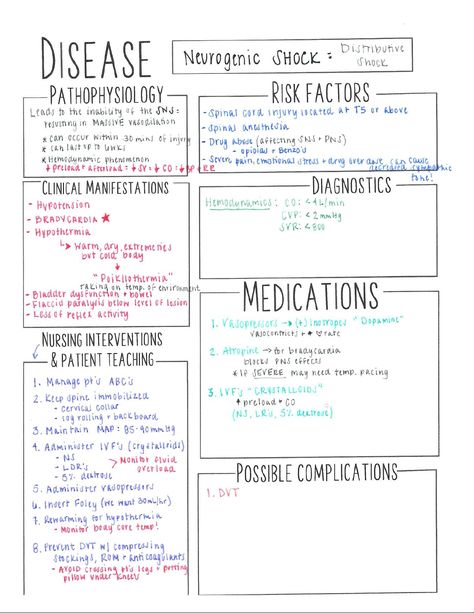 DISEASE
NEUROGENIC SHOCK: Distributive Shock
PATHOPHYSIOLOGY
Leads to the inability of the SNS:
resulting in MASSIVE vasodilation
* can occur within 30 mins of injury
* can last up to 6 wks
* Hemodynamic phenomenon
↓ preload + afterload: ↓ SV: ↓ CO: ↓ BP
RISK FACTORS
- Spinal cord injury located at T5 or above
- Spinal anesthesia
- Drug abuse (affecting SNS + PNS)
- opioids + Benzo's
- Severe pain, emotional stress + drug overdose can cause
decreased sympathetic
tone!
CLINICAL MANIFESTATIONS
- Hypotension
- BRADYCARDIA ★
- Hypothermia
↳ Warm, dry, extremeties
but cold body
↓
"Poikilothermia"
taking on temp. of environment
- Bladder dysfunction + bowel
- Flaccid paralysis below level of lesion
- Loss of reflex activity
DIAGNOSTICS
Hemodynamics: CO: <4 L/min
CVP: <2 mmHg
SVR: <800
MEDICATIONS
1. Vasopressors → (+) inotropes "Dopamine"
vasoconstricts + rate
2. Atropine → for bradycardia
blocks PNS effects
* If SEVERE may need temp. pacing
3. IVF's "CRYSTALLOIDS"
↑ preload + CO
(NS, LR's, 5% dextrose)
NURSING INTERVENTIONS
& PATIENT TEACHING
1. Manage pt's ABC's
2. Keep spine immobilized
- cervical collar
- log rolling + backboard
3. Maintain MAP: 85-90 mmHg
4. Administer IVF's (crystalloids)
- NS
- LDR's
- 5% dextrose
> Monitor fluid
overload
5. Administer vasopressors
6. Insert Foley (we want 30mL/hr)
7. Rewarming for hypothermia
- Monitor body core temp!
8. Prevent DVT w/ compressing
stockings, ROM + anticoagulants
- AVOID crossing pt's legs + putting
pillow under knees
POSSIBLE COMPLICATIONS
1. DVT